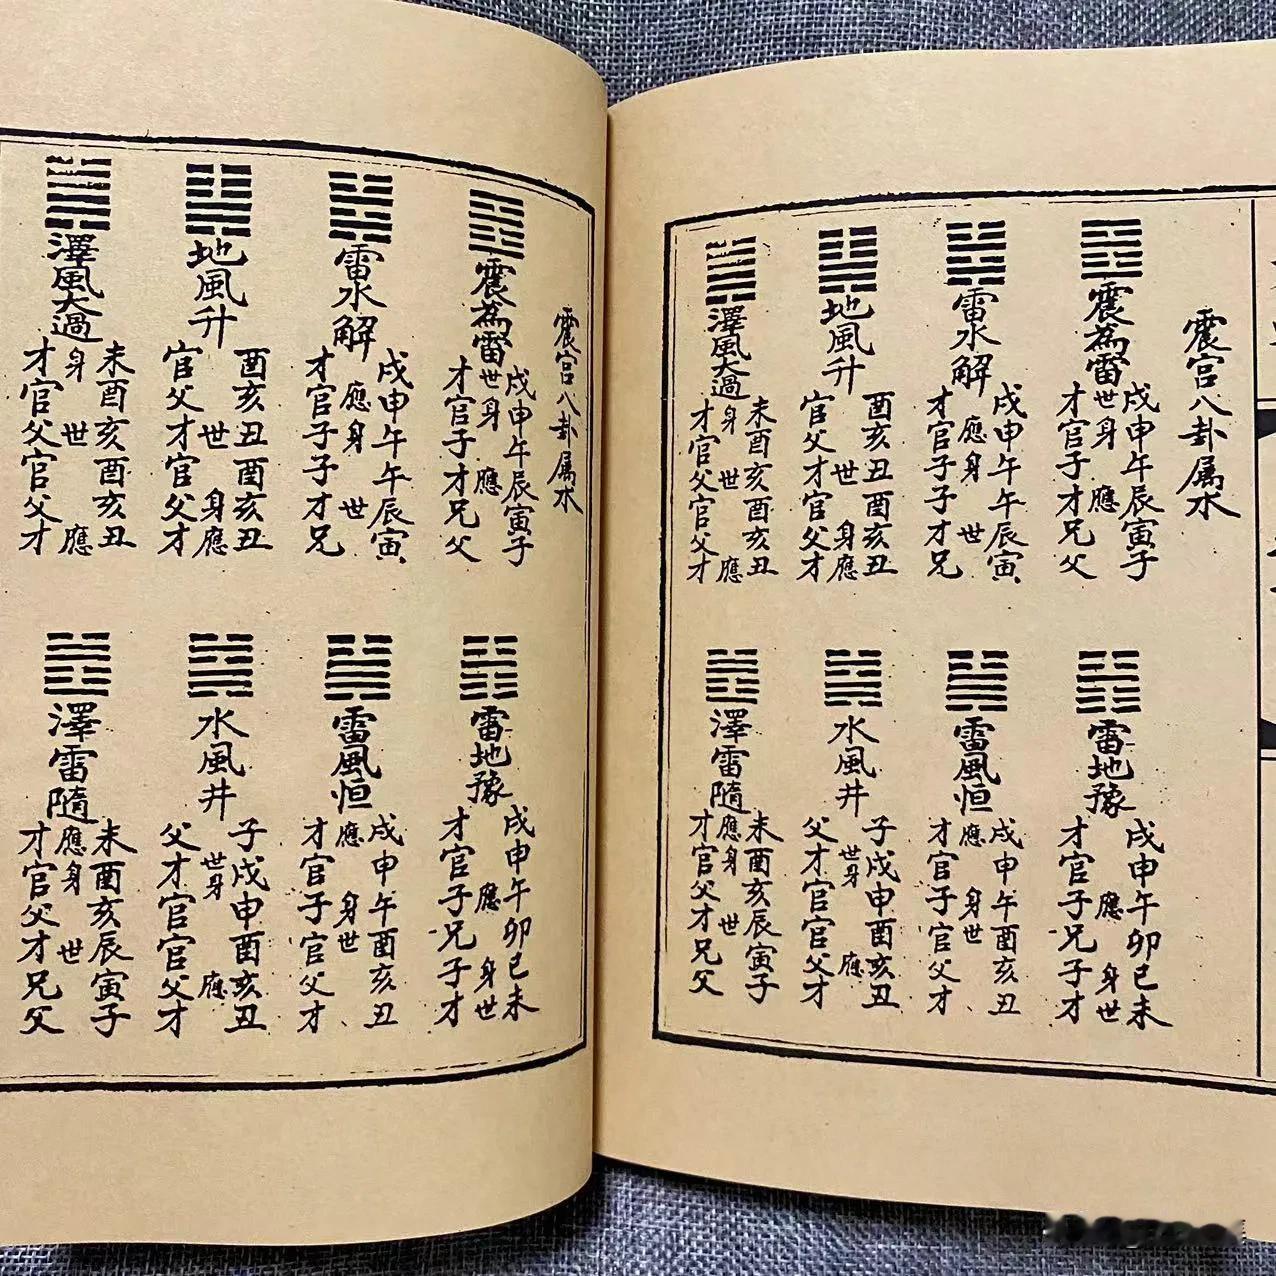 震宮八卦属水
震為雷
戌申午辰寅子
世身 應
才官子才兄父
雷水解
戌申午午辰寅
應身 世
才官子子才兄
地風升
酉亥丑酉亥丑
世 身應
官父才官父才
澤風大過
未酉亥酉亥丑
身 世 應
才官父官父才
雷地豫
戌申午卯巳未
應 身世
才官子兄子才
雷風恒
戌申午酉亥丑
應 身世
才官子官父才
水風井
子戌申酉亥丑
世身 應
父才官官父才
澤雷隨
未酉亥辰寅子
應身 世
才官父才兄父
震宮八卦属水
震為雷
戌申午辰寅子
世身 應
才官子才兄父
雷水解
戌申午午辰寅
應身 世
才官子子才兄
地風升
酉亥丑酉亥丑
世 身應
官父才官父才
澤風大過
未酉亥酉亥丑
身 世 應
才官父官父才
雷地豫
戌申午卯巳未
應 身世
才官子兄子才
雷風恒
戌申午酉亥丑
應 身世
才官子官父才
水風井
子戌申酉亥丑
世身 應
父才官官父才
澤雷隨
未酉亥辰寅子
應身 世
才官父才兄父